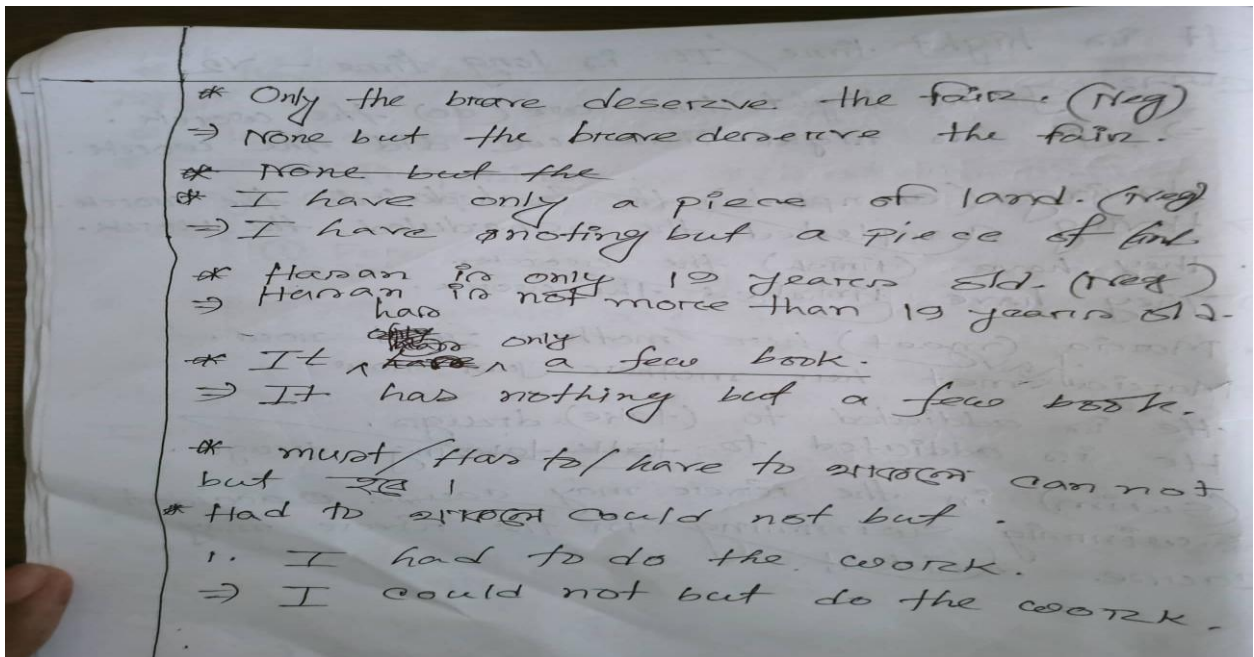 * Only the brave deserve the fair. (Neg)
⇒ None but the brave deserve the fair.
* None but the
* I have only a piece of land. (Neg)
⇒ I have noting but a piece of
* Hasan is only 19 years old. (Neg)
⇒ Hasan is not more than 19 years old.
has only
* It ^ ^ a few book.
⇒ It has nothing but a few book.
* must/Has to/have to থাকলে can not
but হবে।
* Had to থাকলে could not but.
1. I had to do the work.
⇒ I could not but do the work.